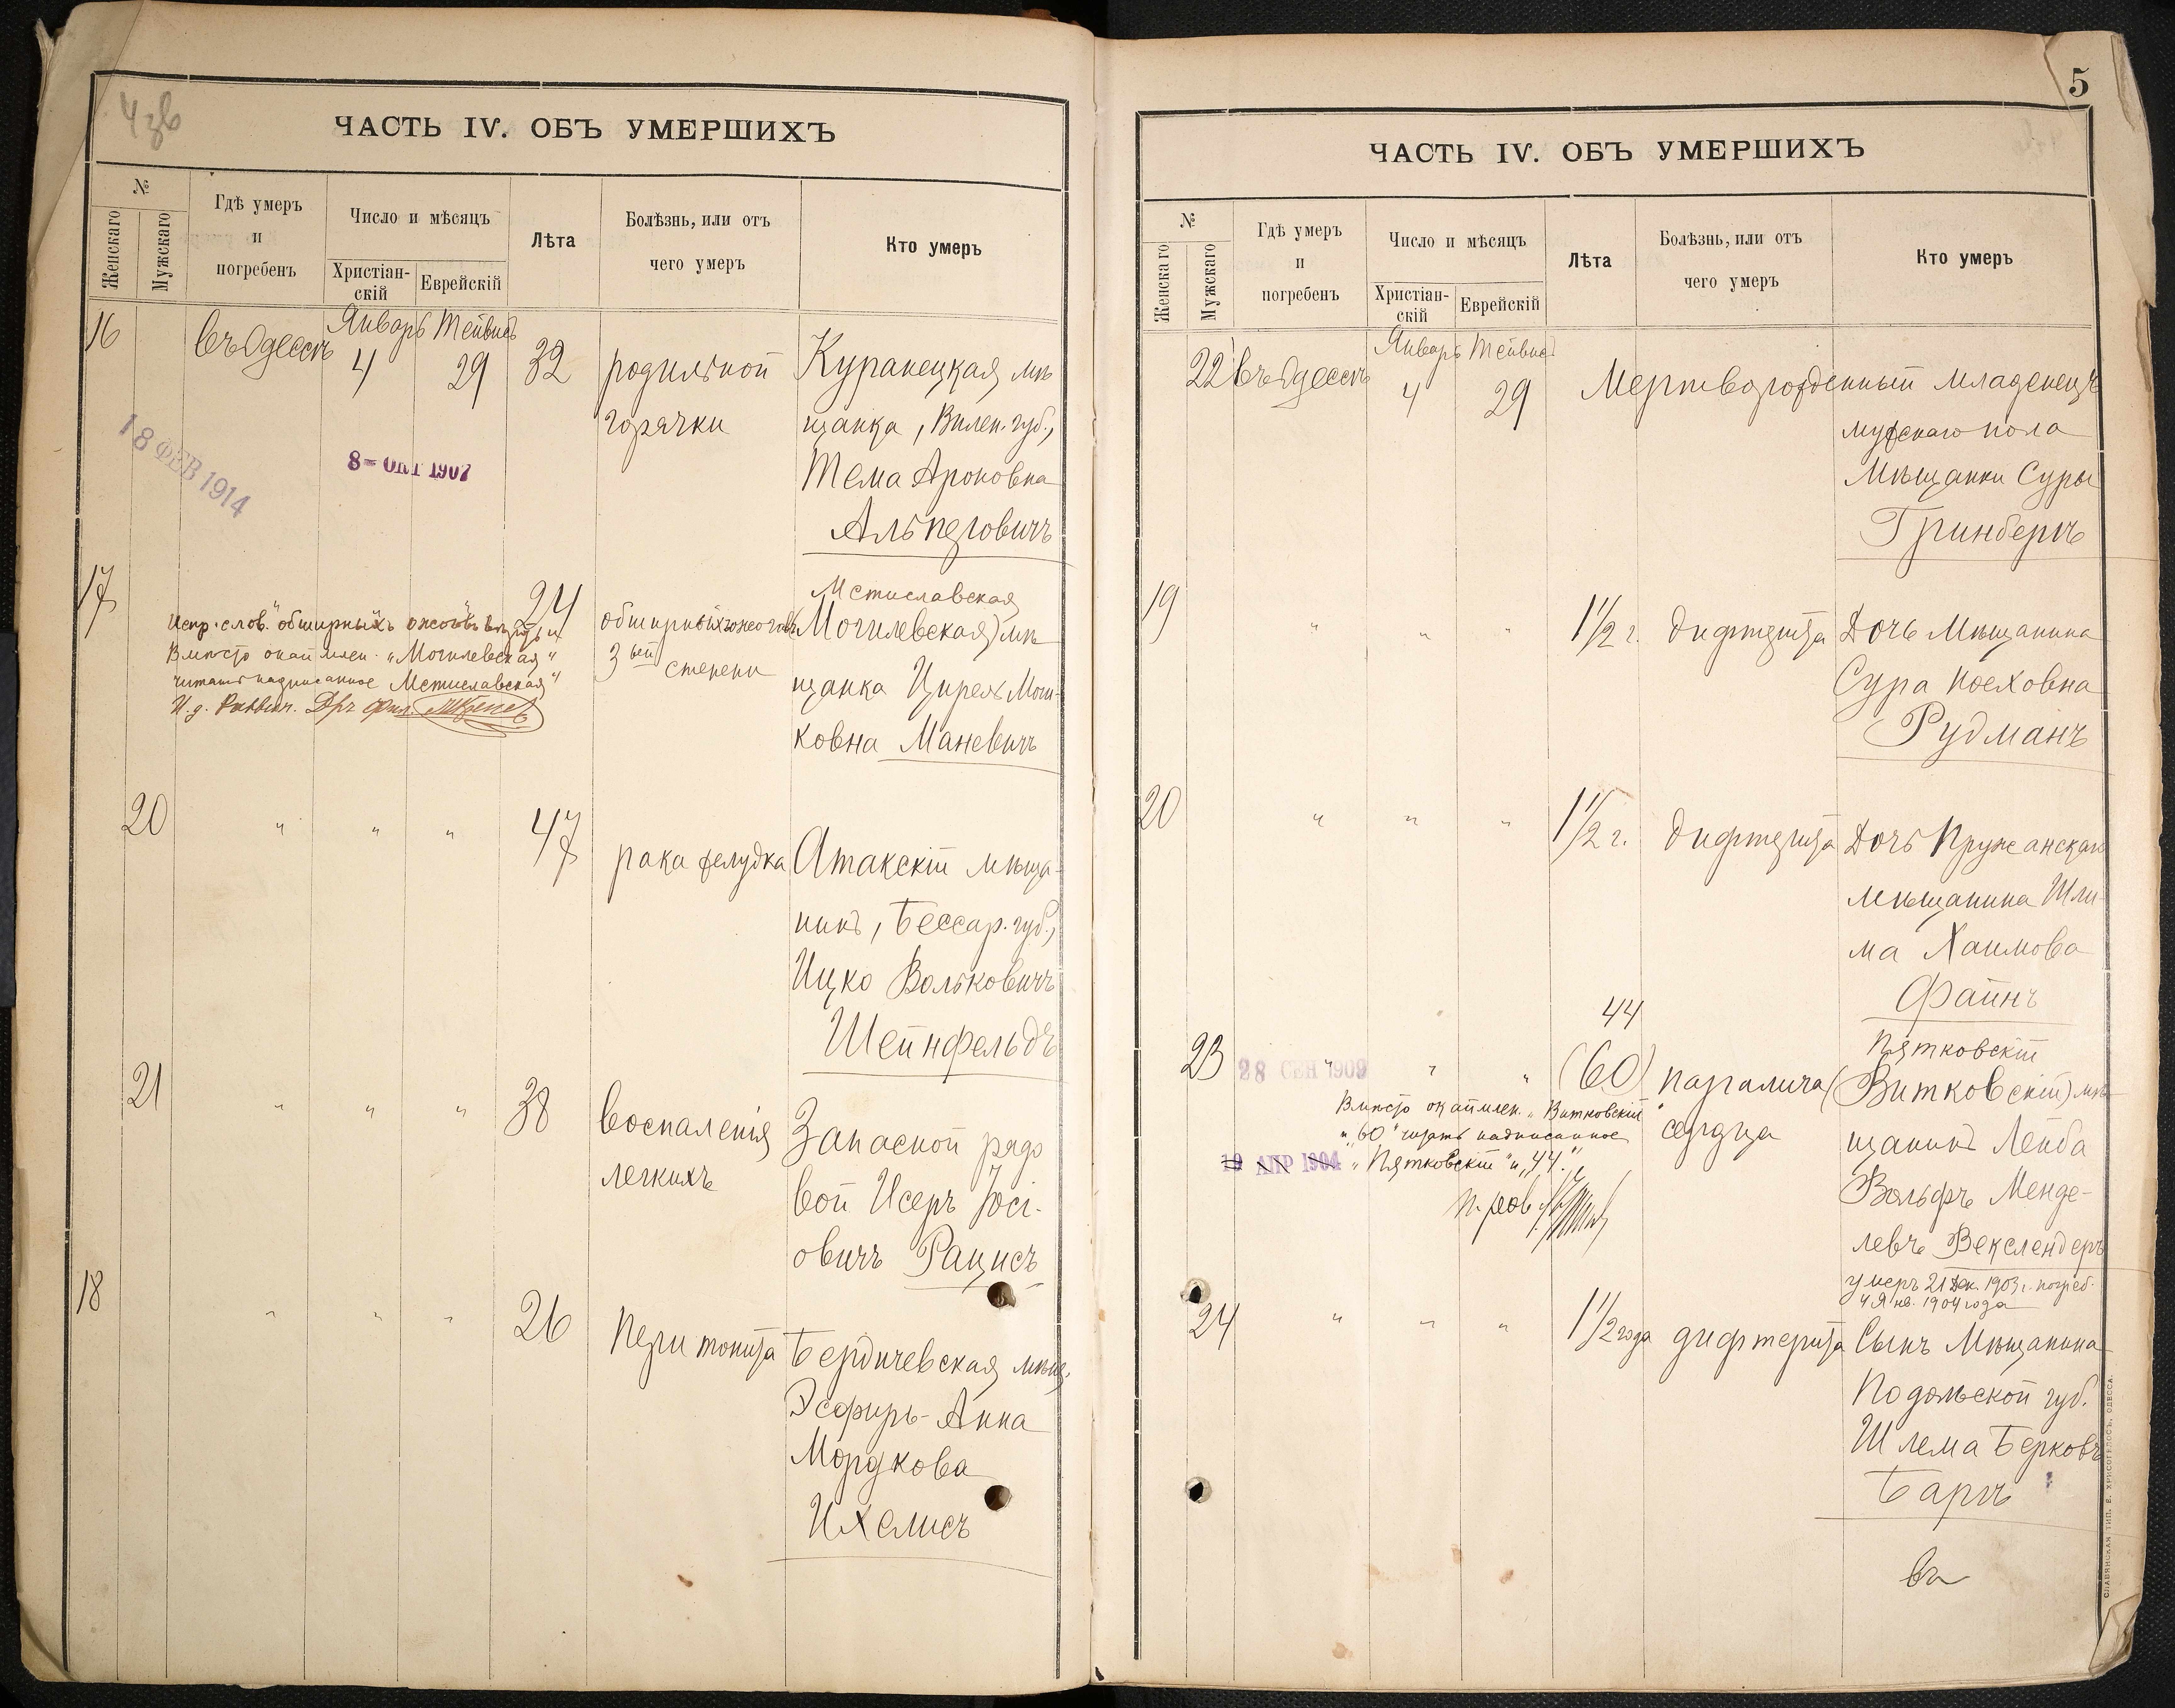 4 зв
ЧАСТЬ IV. ОБЪ УМЕРШИХЪ
№
Женскаго
Мужскаго
Гдѣ умеръ
и
погребенъ
Число и мѣсяцъ
Христіан-
скій
Еврейскій
Лѣта
Болѣзнь, или отъ
чего умеръ
Кто умеръ
16
въ Одессѣ
Январь
4
Тейвисъ
29
32
родильной
горячки
Куранецкая мѣ
щанка, Вилен. губ.,
Тема Ароновна
Альперовичъ
18 ФЕВ 1914
8 - ОКТ 1907
17
24
обширныхъ ожоговъ
3ей степени
Мстиславская
(Могилевская) мѣ
щанка Цирля
ковна Маневичъ
Испр. слов. "обширныхъ ожоговъ
Вмѣсто окаймлен. "Могилевская"
читать надписанное "Мстиславская"
И. д. Раввин. Д-ръ Фил.
20
" " "
47
рака желудка
Атакскій мѣща-
нинъ, Бессар. губ.,
Ицко Вольковичъ
Шейнфельдъ
21
" " "
38
воспаленія
легкихъ
Запасной рядо
вой Исеръ Іосі-
овичъ Рацисъ
18
" " "
26
Перитонита
Бердичевская мѣщ.
Эсфирь-Анна
Мордкова
Ихелисъ
5
ЧАСТЬ IV. ОБЪ УМЕРШИХЪ
№
Женскаго
Мужскаго
Гдѣ умеръ
и
погребенъ
Число и мѣсяцъ
Христіан-
скій
Еврейскій
Лѣта
Болѣзнь, или отъ
чего умеръ
Кто умеръ
22
въ Одессѣ
Январь
4
Тейвисъ
29
Мертворожденный младенецъ
мужскаго пола
Мѣщанки Суры
Гринбергъ
19
" " "
1 1/2 г.
дифтерита
Дочь Мѣщанина
Сура Іоелховна
Рудманъ
20
" " "
1 1/2 г.
дифтерита
Дочь Пружанскаго
мѣщанина Шли-
ма Хаимова
Файнъ
23
28 СЕН 1909
" " "
44
(60)
паралича
сердца
Пятковскій
(Витковскій) мѣ-
щанинъ Лейба
Вольфъ Менде-
левъ Векслендеръ
умеръ 21 Дек. 1903 г. погреб.
4 Янв. 1904 года
Вмѣсто окаймлен. "Витковскій"
и "60" читать надписанное
"Пятковскій" и "44".
19 АПР 1904
24
" " "
1 1/2 года
дифтерита
Сынъ Мѣщанина
Подольской губ.
Шлема Берковъ
Баръ
СЛАВЯНСКАЯ ТИП. Е. ХРИСОГЕЛОСЪ, ОДЕССА.